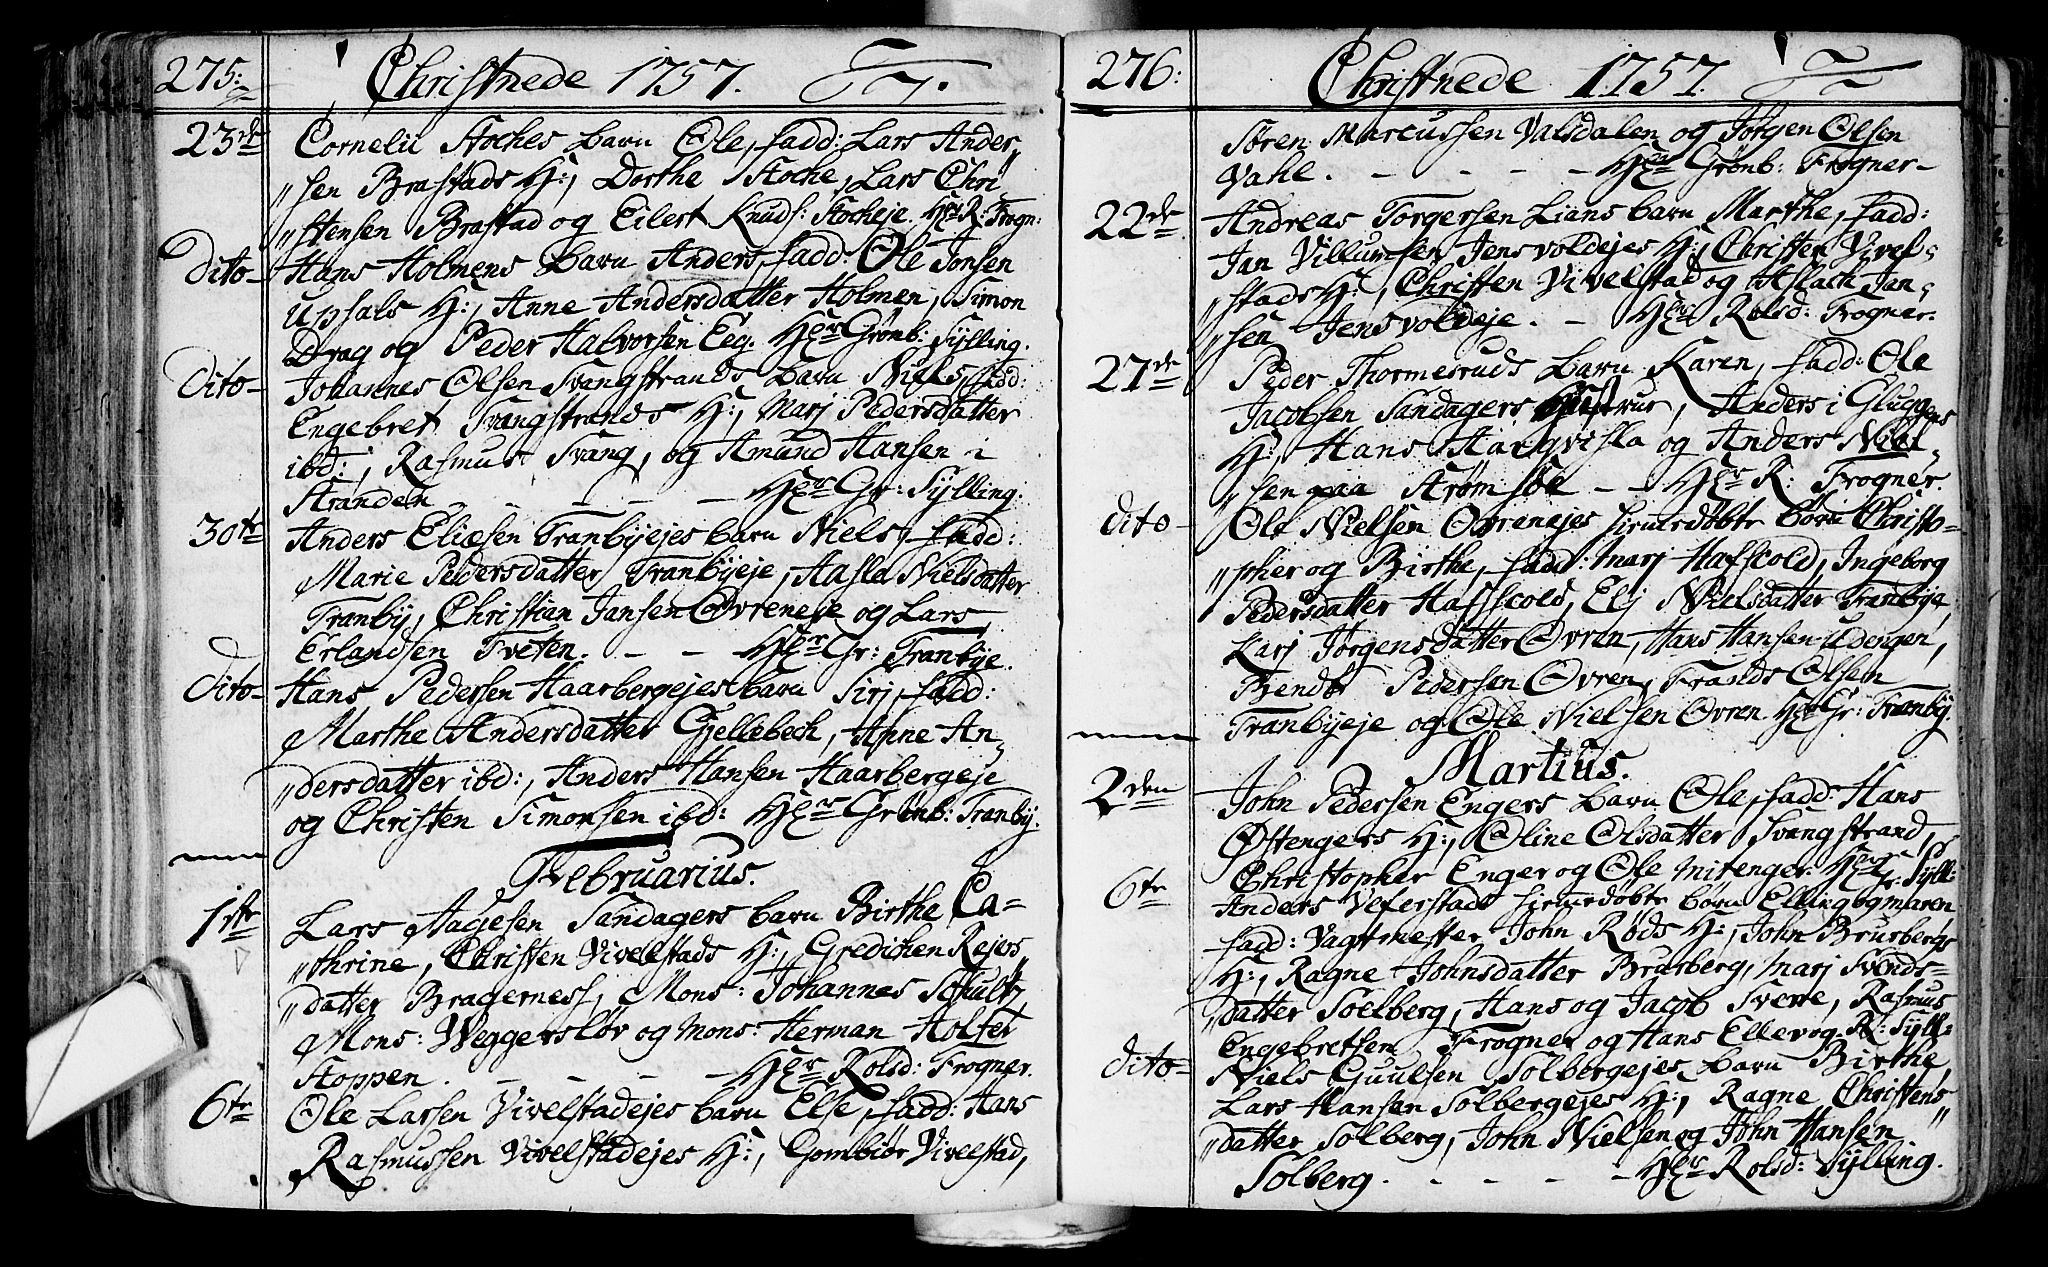 275:
Christnede 1757.
23de Cornelii Stoches barn Ole, fadd: Lars Ander„
„sen Brastads H:, Dorthe Stoche, Lars Chri„
„stensen Brastad og Eilert Knuds: Stocheje. Hr R: Frogn:
Dito- Hans Holmens barn Anders, fadd: Ole Jonsen
Upsals H:, Anne Andersdatter Holmen, Simon
Drag og Peder Halvorsen Eeg. Hr Grønb: Sylling.
Dito- Johannes Olsen Svangstrands barn Niels, fadd:
Engebret Svangstrands H:, Marj Pedersdatter
ibd:, Rasmus Svang, og Amund Hansen i
Stranden - - - - Hr Gr: Sylling.
30te Anders Eliæsen Tranbyejes barn Niels, fadd:
Marie Pedersdatter Tranbyeje, Aasla Nielsdatter
Tranby, Christian Jansen Øvreneje og Lars
Erlandsen Tveten. - - Hr Gr: Tranbye.
Dito- Hans Pedersen Haarbergejes barn Sirj, fadd:
Marthe Andersdatter Gjellebech, Anne An„
„dersdatter ibd:, Anders Hansen Haarbergeje
og Christen Simonsen ibd: Hr Grønb: Tranby.
Februarius.
1ste Lars Aagesen Sandagers barn Birthe Ca-
„thrine, Christen Vivelstads H:, Gredichen Rejers„
„datter Bragerness, Mons: Johannes Schultz,
Mons: Weggersløv og Mons: Herman Holser
Stoppen. - - - - Hr Rolsd: Frogner.
6te Ole Larsen Vivelstadejes barn Else, fadd: Hans
Rasmussen Vivelstadejes H:, Gombiør Vivelstad,
276:
Christnede 1757.
Søren Marcussen Valsdalen og Jørgen Olsen
Vahl. - - - - Hr Grønb: Frogner-
22de Andreas Torgersen Lians barn Marthe, fadd:
Jan Villumsen Jensvoldejes H:, Christen Vivel„
„stads H:, Christen Vivelstad og Aslach Jan„
„sen Jensvoldeje. - Hr Rolsd: Frogner.
27de Peder Thormesruds barn Karen, fadd: Ole
Jacobsen Sandagers Hustrue, Anders i Gluggens
H:, Hans Haugvisla og Anders Niel„
„sen paa Strømsøe - - Hr R: Frogner.
dito- Ole Nielsen Øvrenejes hiemedøbte børn Christo-
„pher og Birthe, fadd: Marj Hafscold, Ingeborg
Pedersdatter Haffscold, Elj Nielsdatter Tranbye,
Karj Jørgensdatter Øvren, Hans Hansen Udengen,
Brendør Pedersen Øvren, Frands Olsen
Tranbyeje og Ole Nielsen Øvren. Hr Gr: Tranby.
Martius.
2den John Pedersen Engers barn Ole, fadd: Hans
Østengers H:, Oline Olsdatter Svangstrand,
Christopher Enger og Ole Mitenger. Hr Gr: Syll:
6te Anders Veferstads hiemedøbte børn Elling og Maren
fadd: Vagtmester John Røds H:, John Brusbergs
H:, Ragne Johnsdatter Brusberg, Marj Svends-
„datter Solberg, Hans og Jacob Sverre, Rasmus
Engebretsen Frogner og Hans Ellevog. R: Syll:
dito- Niels Guulsen Solbergejes barn Birthe,
Lars Hansen Solbergejes H:, Ragne Christens„
„datter Solberg, John Nielsen og John Hansen
Solberg. - - - - Hr Rolsd: Sylling.